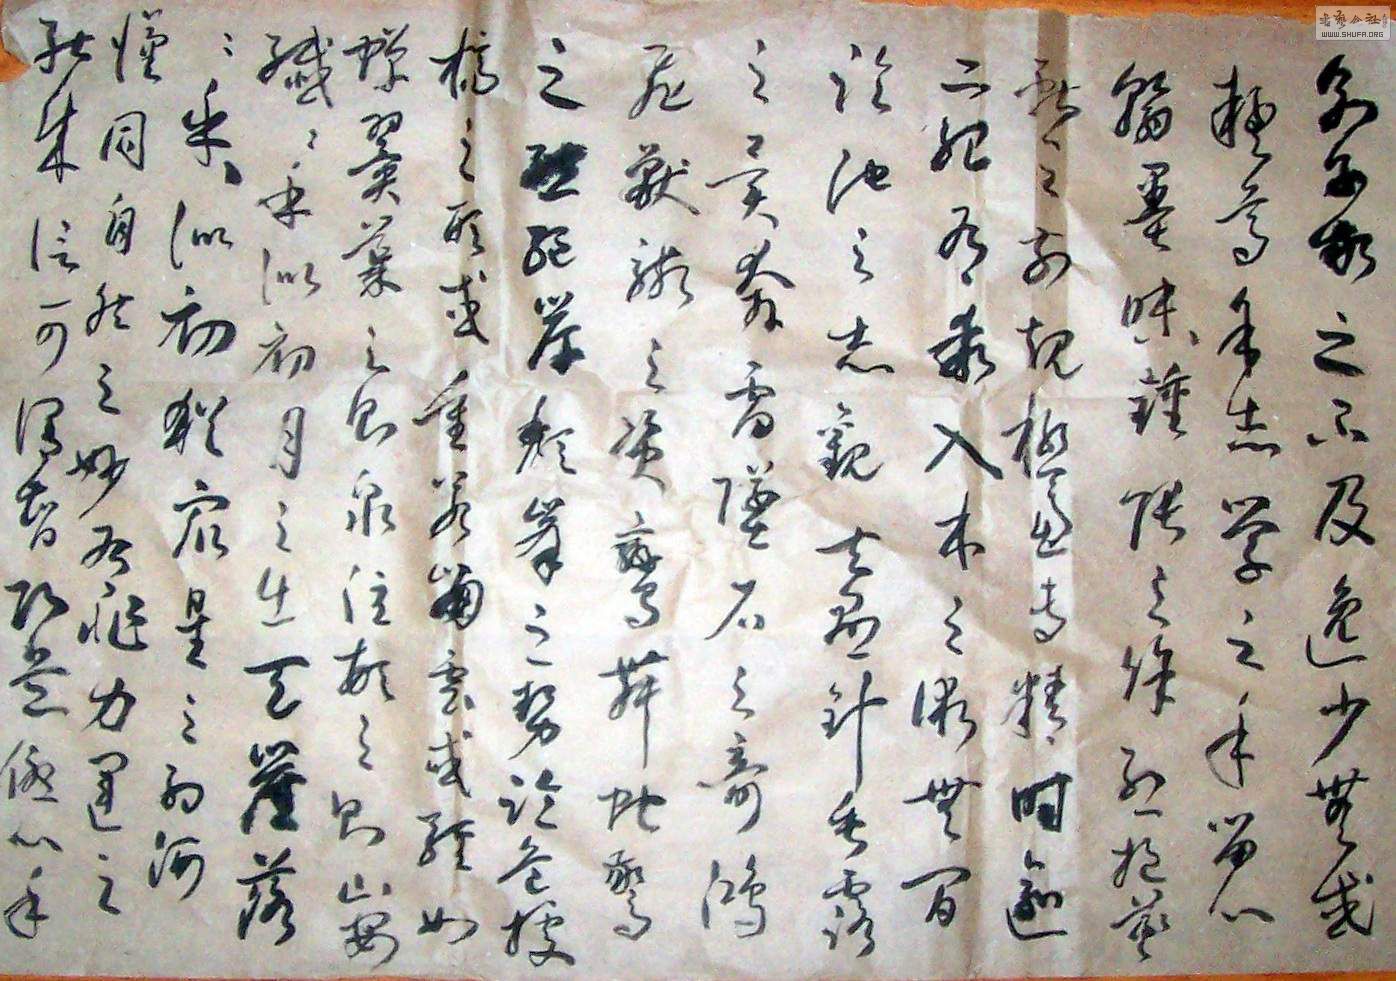 別子敬之不及逸少無或
疑焉余志学之年留心
翰墨味鍾張之餘烈挹羲
獻之前規極慮專精時逾
二紀有乖入木之術無間
臨池之志觀夫懸針垂露
之異奔雷墜石之奇鴻
飛獸駭之資鸞舞蛇驚
之態絕岸頹峰之勢臨危據
槁之形或重若崩雲或輕如
蟬翼導之則泉注頓之則山安
纖〻乎似初月之出天崖落
〻乎似初猶眾星之列河
漢同自然之妙有非力運之
能成信可謂智巧兼優心手
書藝公社
WWW.SHUFA.ORG